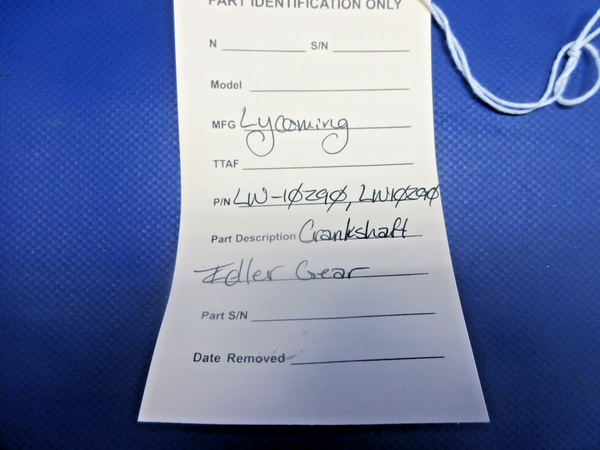 PART IDENTIFICATION ONLY
N S/N
Model
MFG Lycoming
TTAF
P/N LW-10290, LW10290
Part Description Crankshaft
Idler Gear
Part S/N
Date Removed